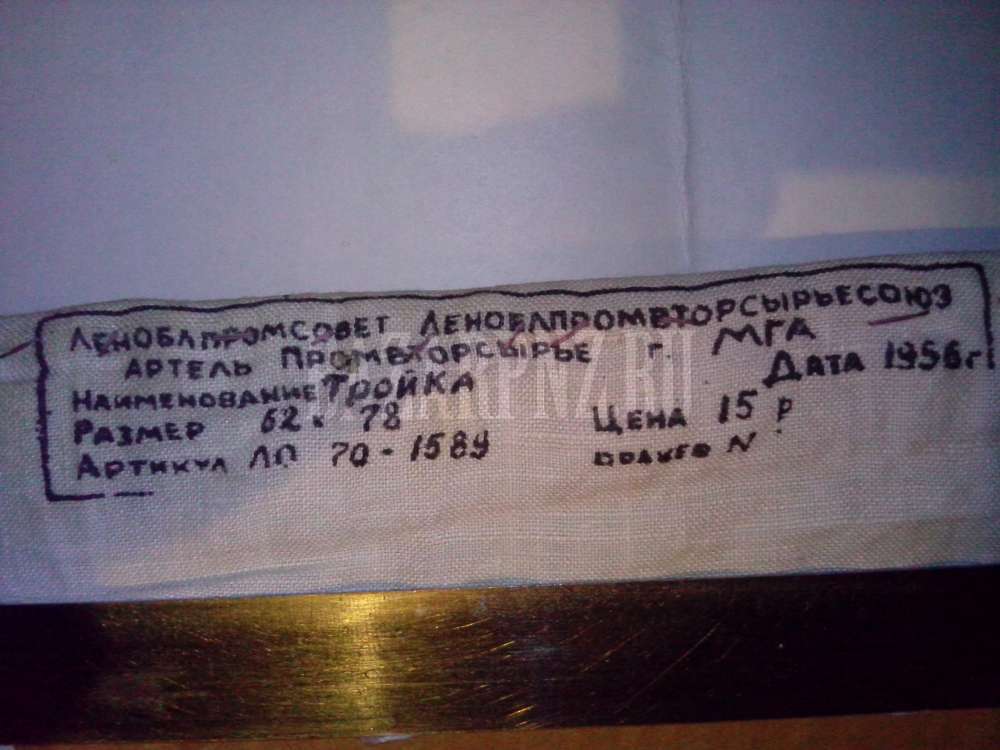 ЛЕНОБЛПРОМСОВЕТ ЛЕНОБЛПРОМВТОРСЫРЬЕСОЮЗ
АРТЕЛЬ ПРОМВТОРСЫРЬЕ г. МГА
НАИМЕНОВАНИЕ ТРОЙКА ДАТА 1956 г
РАЗМЕР 62 x 78 ЦЕНА 15 р
АРТИКУЛ ЛО 70-1589 N